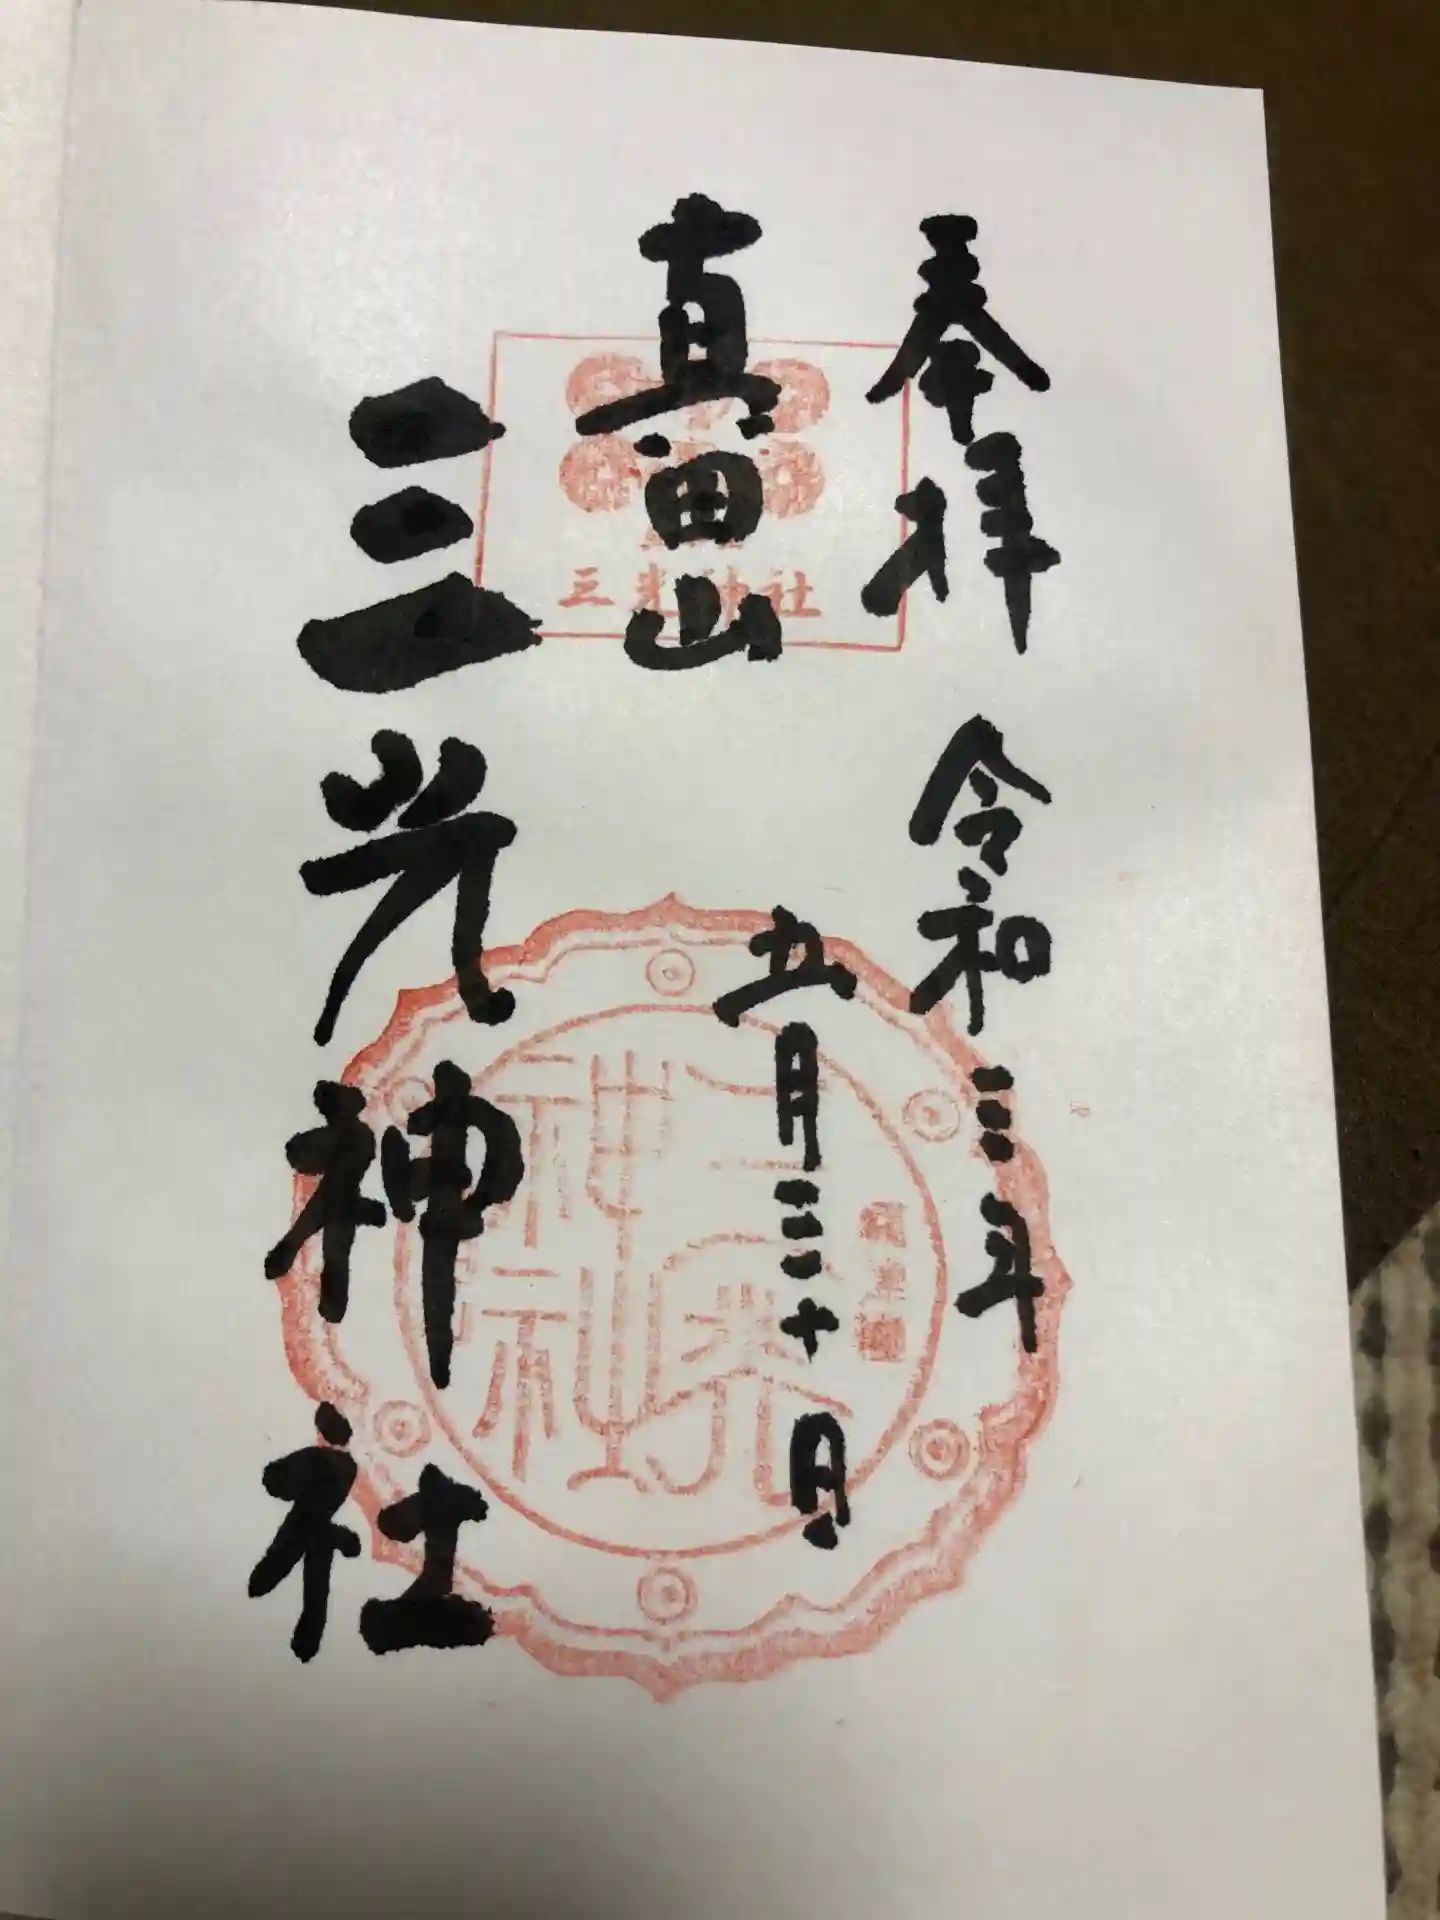 奉拝 令和三年
五月三十日
真田山
三光神社
三光神社
三光神社